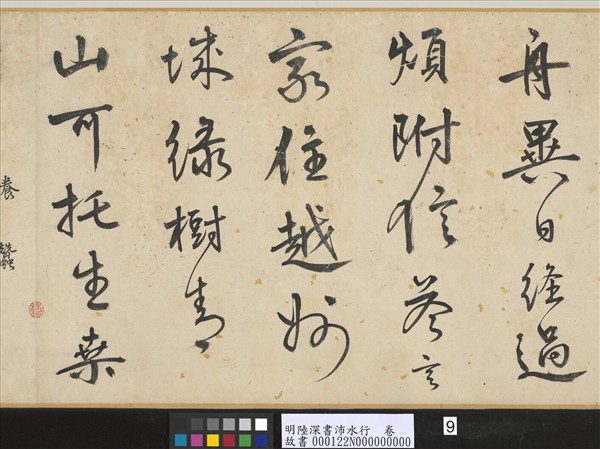 舟異日經過
煩附信答言
家住越州
城綠樹青〻
山可托生桑
養蠶
明陸深書沛水行 卷
故書 000122N000000000
9